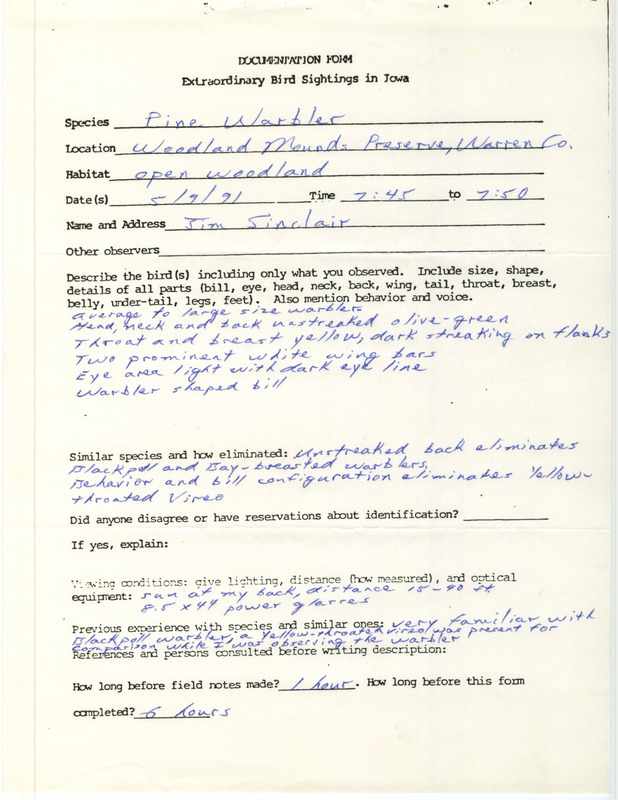 DOCUMENTATION FORM
Extraordinary Bird Sightings in Iowa
Species Pine Warbler
Location Woodland Mounds Preserve, Warren Co.
Habitat open woodland
Date(s) 5/9/91 Time 7:45 to 7:50
Name and Address Jim Sinclair
Other observers
Describe the bird(s) including only what you observed. Include size, shape,
details of all parts (bill, eye, head, neck, back, wing, tail, throat, breast,
belly, under-tail, legs, feet). Also mention behavior and voice.
Average to large size warbler
Head, neck and back unstreaked olive-green
Throat and breast yellow, dark streaking on flanks
Two prominent white wing bars
Eye area light with dark eye line
Warbler shaped bill
Similar species and how eliminated: Unstreaked back eliminates
Blackpoll and Bay-breasted warblers.
Behavior and bill configuration eliminates Yellow-
throated Vireo
Did anyone disagree or have reservations about identification?
If yes, explain:
Viewing conditions: give lighting, distance (how measured), and optical
equipment: sun at my back, distance 15-40 ft
8.5 x 44 power glasses
Previous experience with species and similar ones: very familiar with
Blackpoll warbler, a Yellow-throated vireo was present for
comparison while I was observing the warbler
References and persons consulted before writing description:
How long before field notes made? 1 hour. How long before this form
completed? 6 hours